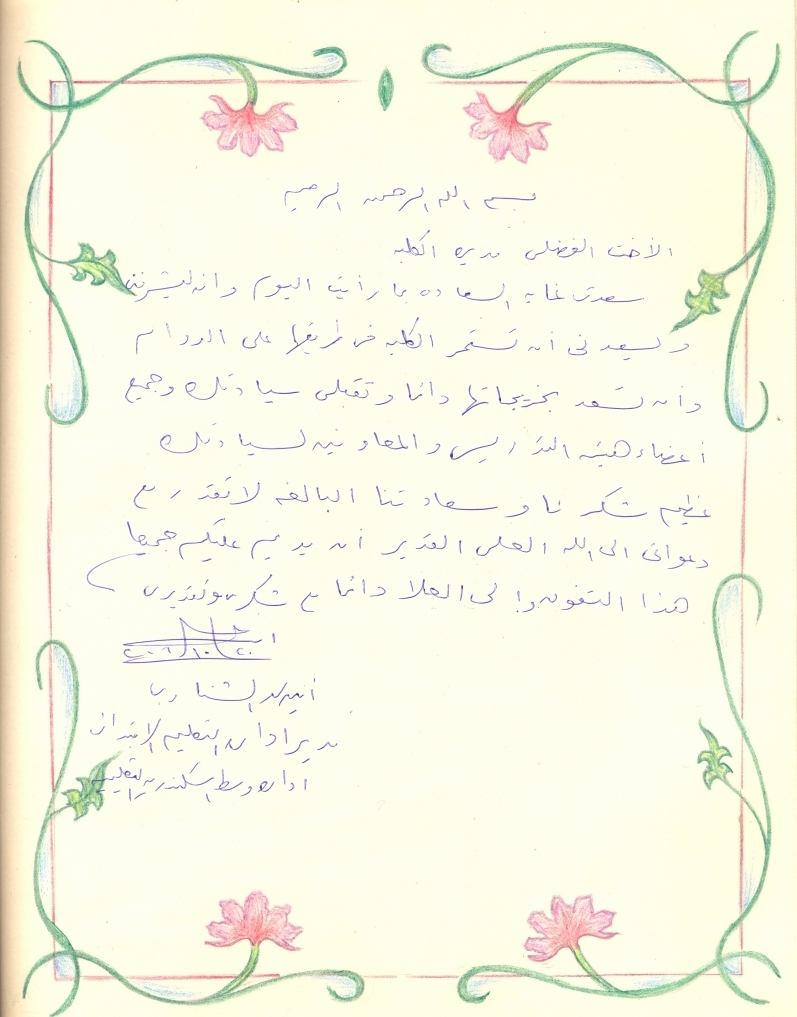 بسم الله الرحمن الرحيم
الأخت الفضلى مديرة الكلية
سعدت غاية السعادة بما رأيت اليوم وانه ليشرفنى
ويسعدنى أن تستمر الكلية فى طريقها على الدوام
وأن تسعد بخريجاتها دائما وتقبلى سيادتك وجميع
أعضاء هيئة التدريس والمعاونين لسيادتك
عظيم شكرنا وسعادتنا البالغة لا تقدر مع
دعواتى الى الله العلى القدير أن يديم عليكم جميعا
هذا التفوق والى العلا دائما مع شكرى وتقديرى
٢٠٠٦/١٠/٢٠
الشناوى
مدير ادارة التعليم الابتدائى
ادارة وسط اسكندرية التعليمية